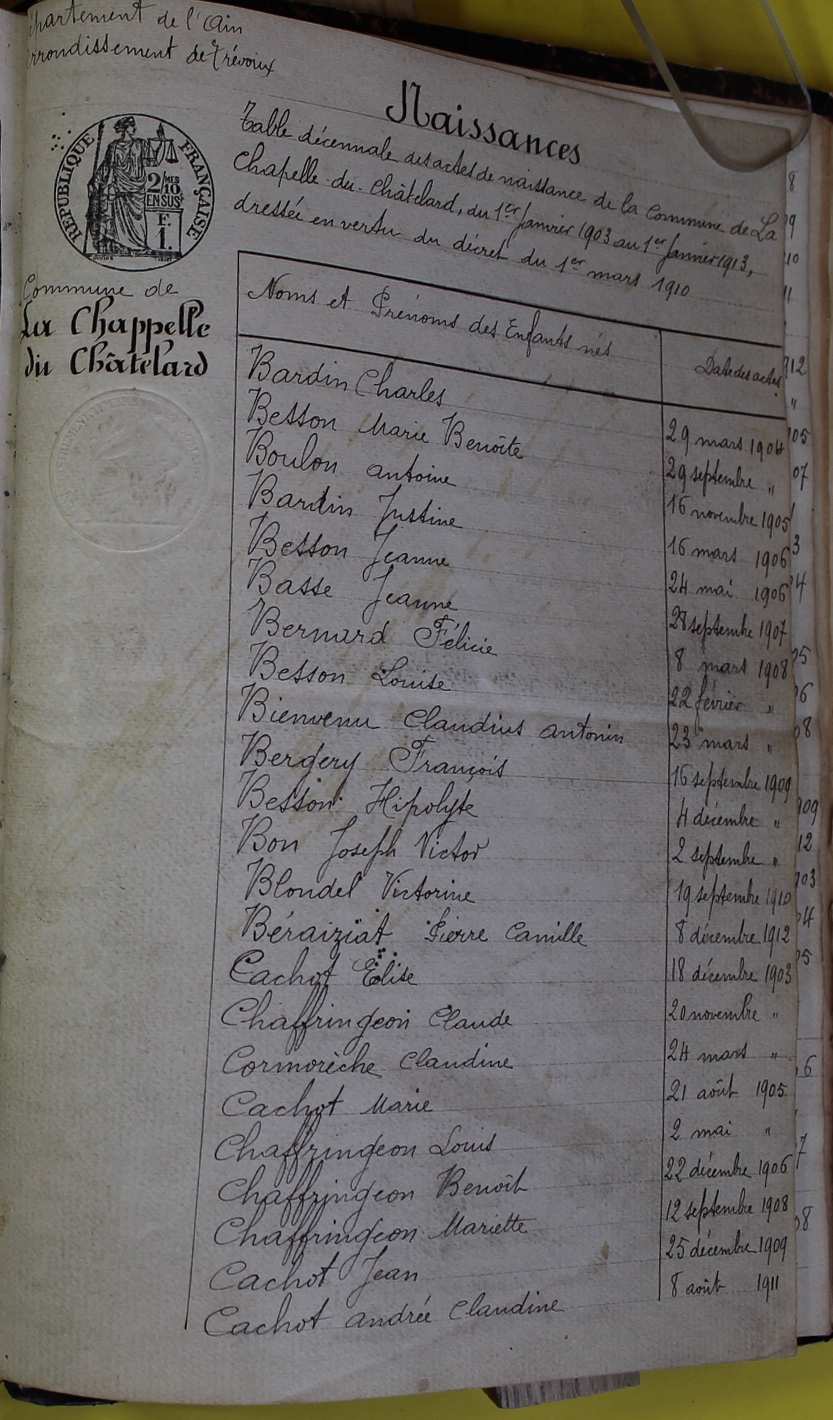 Département de l'Ain
Arrondissement de Trévoux
RÉPUBLIQUE FRANÇAISE
2/10 MES
EN SUS
F.
1.
Commune de
La Chappelle
du Châtelard
Naissances
Table décennale des actes de naissance de la Commune de La
Chapelle-du-Châtelard, du 1er Janvier 1903 au 1er Janvier 1913,
dressée en vertu du décret du 1er mars 1910
Noms et Prénoms des Enfants nés Date des actes
Bardin Charles 29 mars 1904
Besson Marie Benoîte 29 septembre "
Boulon antoine 16 novembre 1905
Bardin Justine 16 mars 1906
Besson Jeanne 24 mai 1906
Basse Jeanne 28 septembre 1907
Bernard Félicie 8 mars 1908
Besson Louise 22 février "
Bienvenu Claudius antonin 23 mars "
Bergery François 16 septembre 1909
Besson Hipolyte 4 décembre "
Bon Joseph Victor 2 septembre "
Blondel Victorine 19 septembre 1910
Béraiziat Pierre Camille 8 décembre 1912
Cachot Elise 18 décembre 1903
Chaffringeon Claude 20 novembre "
Cormorèche Claudine 24 mars "
Cachot Marie 21 août 1905
Chaffringeon Louis 2 mai "
Chaffringeon Benoît 22 décembre 1906
Chaffringeon Mariette 12 septembre 1908
Cachot Jean 25 décembre 1909
Cachot andrée Claudine 8 août 1911